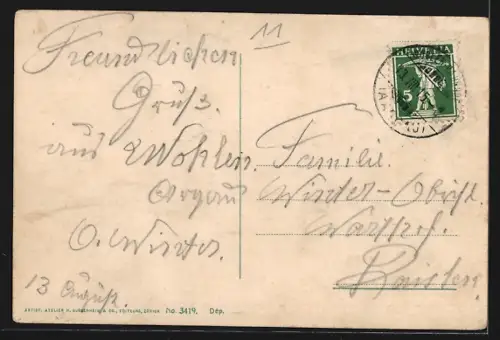 11
Freundlichen
Gruß.
aus Wohlen.
Argau
O. Winter.
13 August.
HELVETIA
5
Familie.
Winter-Obrist.
Kaisten
No. 3419. Dep.